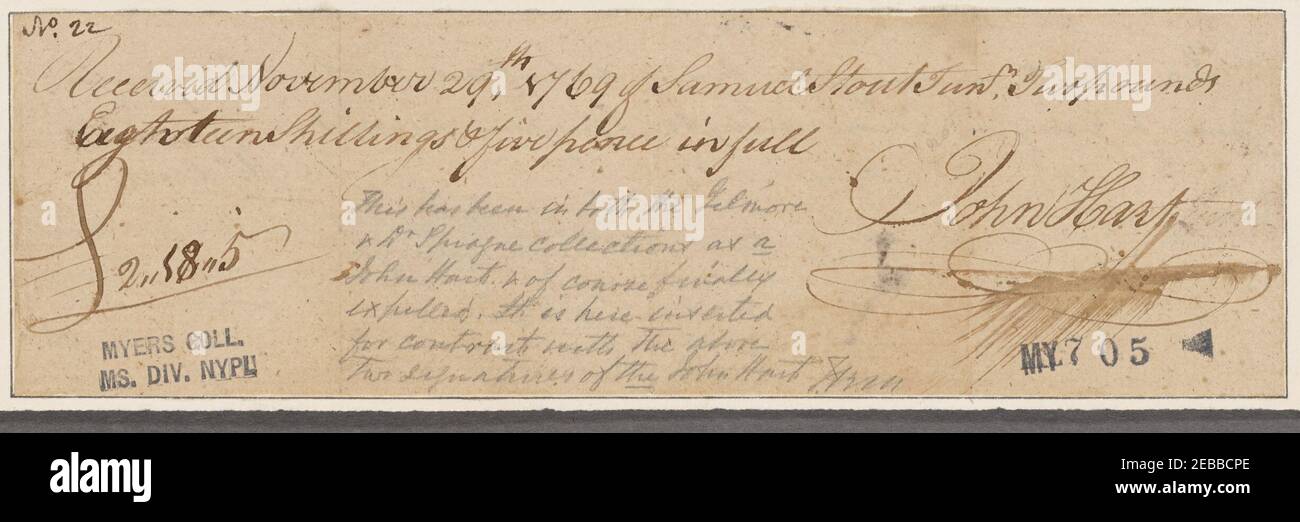 No. 22
Received November 29th, 1769 of Samuel Stout Junr. Two pounds
Eighteen Shillings & five pence in full
John Hart
£ 2,,18,,5
This has been in both the Gilmore
& Dr Sprague collections as a
John Hart & of course finally
expelled. It is here inserted
for contrast with the above
two signatures of the John Hart
MYERS COLL.
MS. DIV. NYPL
MY.705
a
alamy
Image ID: 2EBBCPE
www.alamy.com